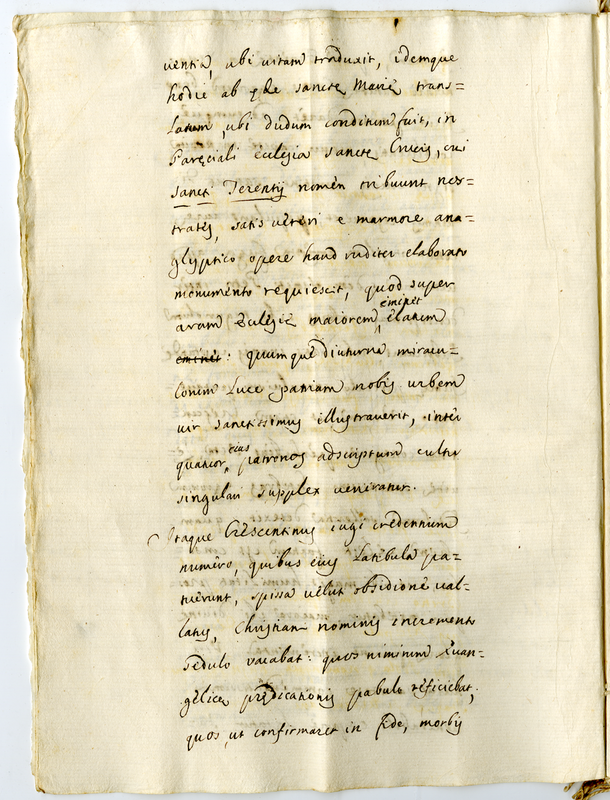 ventia, ubi vitam traduxit, idemque
hodie ab æde sanctæ Mariæ trans=
latum, ubi dudum conditum fuit, in
Paręciali ęclesia sanctę Crucis, cui
sancti Terentij nomen tribuunt nos=
trates, satis veteri e marmore ana=
glyptico opere haud ruditer elaborato
monumento requiescit, quod super
aram ęclesię maiorem, eminet elatum
eminet: quumque diuturna miracu=
lorum luce patriam nobis urbem
vir sanctissimus illustraverit, inter
quatuor eius patronos adscriptum cultu
singulari supplex veneratur.
Itaque Crescentinus iugi credentium
numero, quibus eius latibula pa=
tuerunt, spissa velut obsidione val=
latus, Christiani nominis incremento
sedulo vacabat: quos nimirum Evan=
gelicę prędicationis pabulo reficiebat;
quos, ut confirmaret in fide, morbis